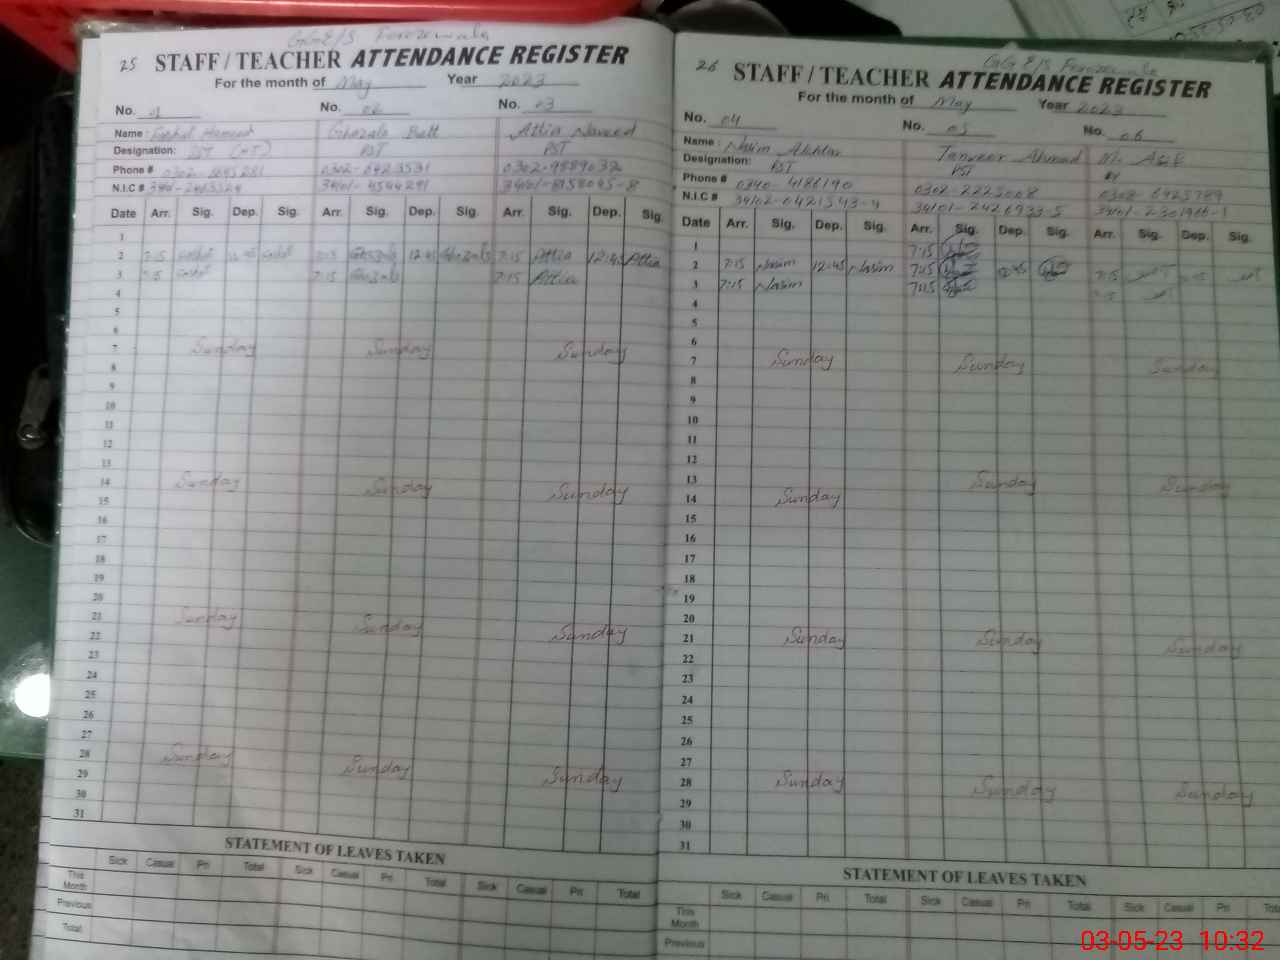 25
STAFF / TEACHER ATTENDANCE REGISTER
For the month of May Year 2023
No. 01 No. 02 No. 03
Name : Ghazala Butt Attia Naveed
Designation: SST (HT) PST PST
Phone #
N.I.C #
Date Arr. Sig. Dep. Sig. Arr. Sig. Dep. Sig. Arr. Sig. Dep. Sig.
1
2 7:15 7:15 Ghazala 12:45 Ghazala 7:15 Attia 12:45 Attia
3 7:15 7:15 Ghazala 7:15 Attia
4
5
6
7 Sunday Sunday Sunday
8
9
10
11
12
13
14 Sunday Sunday Sunday
15
16
17
18
19
20
21 Sunday Sunday Sunday
22
23
24
25
26
27
28 Sunday Sunday Sunday
29
30
31
STATEMENT OF LEAVES TAKEN
Sick Casual Pri Total Sick Casual Pri Total Sick Casual Pri Total
This Month
Previous
Total
26
STAFF / TEACHER ATTENDANCE REGISTER
For the month of May Year 2023
No. 04 No. 05 No. 06
Name : Nasim Akhtar Tanveer Ahmad
Designation: PST PST
Phone # 0340-4186190 0302-2225008 0308-6925789
N.I.C #
Date Arr. Sig. Dep. Sig. Arr. Sig. Dep. Sig. Arr. Sig. Dep. Sig.
1 7:15
2 7:15 Nasim 12:45 Nasim 7:15 7:15
3 7:15 Nasim 7:15
4
5
6
7 Sunday Sunday Sunday
8
9
10
11
12
13 Sunday Sunday
14 Sunday
15
16
17
18
19
20
21 Sunday Sunday Sunday
22
23
24
25
26
27
28 Sunday Sunday Sunday
29
30
31
STATEMENT OF LEAVES TAKEN
Sick Casual Pri Total Sick Casual Pri Total Sick Casual Pri
This Month
Previous
03-05-23 10:32